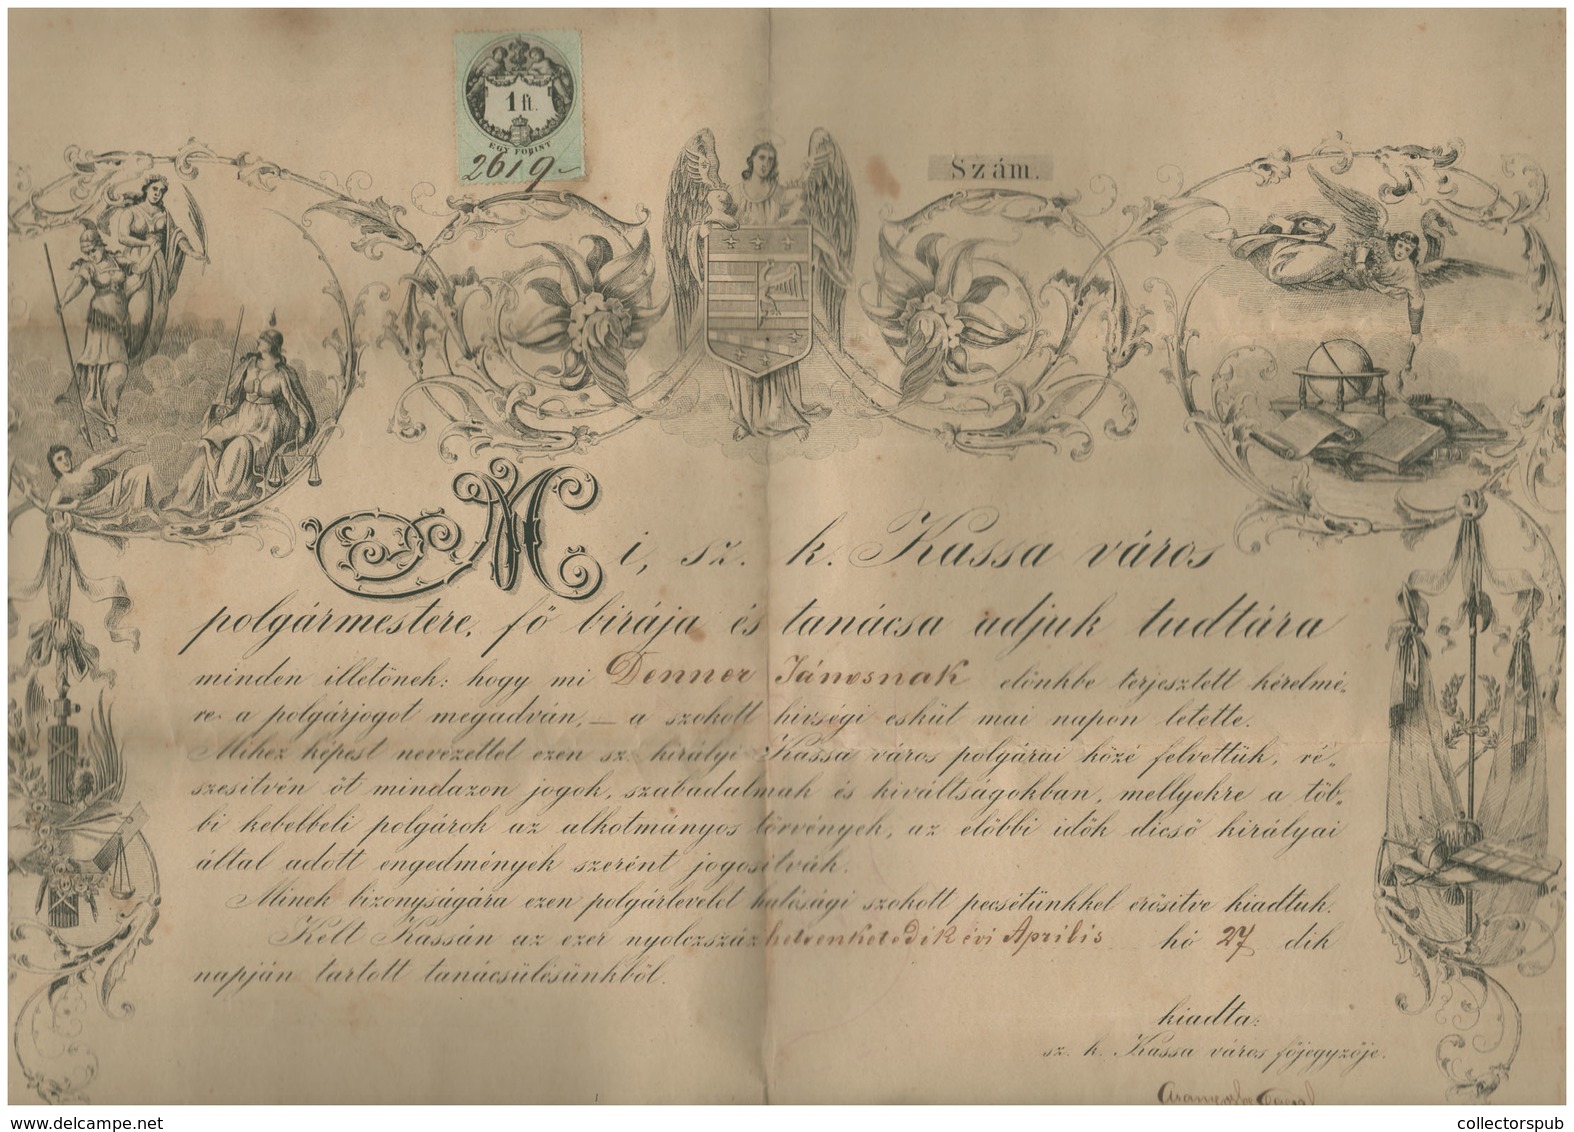 1 ft.
EGY FORINT
2619
Szám.
Mi, sz. k. Kassa város
polgármestere, fő birája és tanácsa adjuk tudtára
minden illetőnek: hogy mi Denner Jánosnak előnkbe terjesztett kérelmé-
re a polgárjogot megadván, — a szokott hivségi esküt mai napon letette.
Mihez képest nevezettet ezen sz. királyi Kassa város polgárai közé felvettük, ré-
szesitvén őt mindazon jogok, szabadalmak és kiváltságokban, mellyekre a töb-
bi kebelbeli polgárok az alkotmányos törvények, az előbbi idők dicső királyai
által adott engedmények szerént jogositvák.
Minek bizonyságára ezen polgárlevelet hatósági szokott pecsétünkkel erősitve kiadtuk.
Kelt Kassán az ezer nyolczszáz hetvenketedik évi Április hó 27 dik
napján tartott tanácsülésünkből.
kiadta:
sz. k. Kassa város főjegyzője.
collectorspub